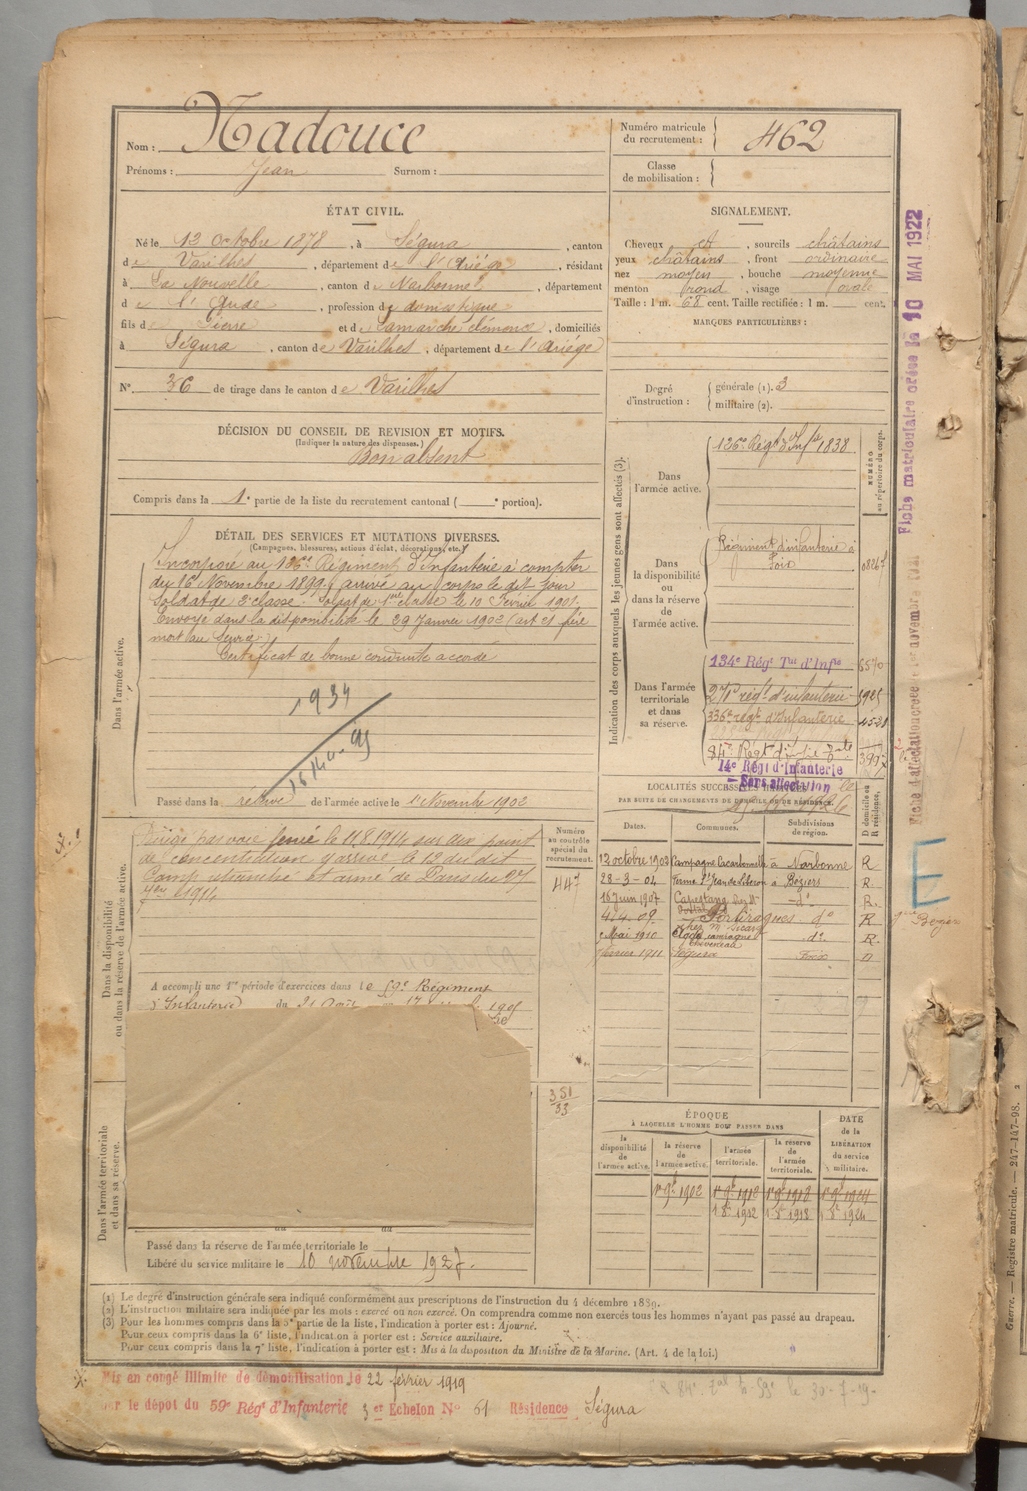 Nom : Nadouce
Prénoms : Jean Surnom :
Numéro matricule du recrutement : 462
Classe de mobilisation :
ÉTAT CIVIL.
Né le 12 octobre 1878, à Ségura, canton
de Varilhes, département de l'Ariége, résidant
à La Nouvelle, canton de Narbonne, département
de l'Aude, profession de domestique
fils de Pierre et de Lamarche Clémence, domiciliés
à Ségura, canton de Varilhes, département de l'Ariége
N° 36 de tirage dans le canton de Varilhes
SIGNALEMENT.
Cheveux et, sourcils châtains
yeux châtains, front ordinaire
nez moyen, bouche moyenne
menton rond, visage ovale
Taille : 1 m. 68 cent. Taille rectifiée : 1 m. cent.
MARQUES PARTICULIÈRES :
Degré d'instruction : générale (1). 3
militaire (2).
DÉCISION DU CONSEIL DE REVISION ET MOTIFS.
(Indiquer la nature des dispenses.)
Bon absent
Compris dans la 1e partie de la liste du recrutement cantonal ( e portion).
DÉTAIL DES SERVICES ET MUTATIONS DIVERSES.
(Campagnes, blessures, actions d'éclat, décorations, etc.)
Dans l'armée active.
Incorporé au 126e Régiment d'Infanterie à compter
du 16 Novembre 1899, arrivé au corps le dit jour
Soldat de 2e classe. Soldat de 1ère classe le 10 Février 1901.
Envoyé dans la disponibilité le 29 Janvier 1902 (art 21 frère
mort au Service)
Certificat de bonne conduite accordé
1934
Passé dans la réserve de l'armée active le 1er Novembre 1902
Indication des corps auxquels les jeunes gens sont affectés (3).
NUMÉRO au répertoire du corps.
Dans l'armée active.
126e Régt d'Infie 1838
Dans la disponibilité ou dans la réserve de l'armée active.
Régiment d'infanterie à
Foix
Dans l'armée territoriale et dans sa réserve.
134e Régt Tal d'Infie
336e régt d'Infanterie
14e Régt d'Infanterie
Sans affectation
Dans la disponibilité ou dans la réserve de l'armée active.
Dirigé par voie ferrée le 11.8.1914 sur un point
de concentration y arrivé le 12 du dit
Camp retranché et armé de Paris du 27
1914
Numéro au contrôle spécial du recrutement.
447
A accompli une 1re période d'exercices dans le 59e Régiment
d'Infanterie du 21 Août
351
33
LOCALITÉS SUCCESSIVES HABITÉES
PAR SUITE DE CHANGEMENTS DE DOMICILE OU DE RÉSIDENCE.
Dates. Communes. Subdivisions de région. D domicile ou R résidence.
12 octobre 1902 Campagne à Narbonne R
28-3-04 Ferme St Jean de Libron à Béziers R.
16 juin 1907 Capestang do R.
4.4.09. Portiragues do R
Mai 1910 do R.
février 1911 Ségura Foix
ÉPOQUE
À LAQUELLE L'HOMME DOIT PASSER DANS
la disponibilité de l'armée active. la réserve de l'armée active. l'armée territoriale. la réserve de l'armée territoriale. DATE de la LIBÉRATION du service militaire.
1er 9bre 1902 1er 9bre 1912 1er 9bre 1918 1er 9bre 1924
1 8bre 1912 1 8bre 1918 1 8bre 1924
Dans l'armée territoriale et dans sa réserve.
Passé dans la réserve de l'armée territoriale le
Libéré du service militaire le 10 novembre 1927.
(1) Le degré d'instruction générale sera indiqué conformément aux prescriptions de l'instruction du 4 décembre 1889.
(2) L'instruction militaire sera indiquée par les mots : exercé ou non exercé. On comprendra comme non exercés tous les hommes n'ayant pas passé au drapeau.
(3) Pour les hommes compris dans la 5e partie de la liste, l'indication à porter est : Ajourné.
Pour ceux compris dans la 6e liste, l'indication à porter est : Service auxiliaire.
Pour ceux compris dans la 7e liste, l'indication à porter est : Mis à la disposition du Ministre de la Marine. (Art. 4 de la loi.)
Mis en congé illimité de démobilisation le 22 février 1919
par le dépôt du 59e Régt d'Infanterie 3er Echelon N° 61 Résidence Ségura
Fiche matriculaire créée le 10 MAI 1922
Guerre. — Registre matricule. — 247-147-98. 2